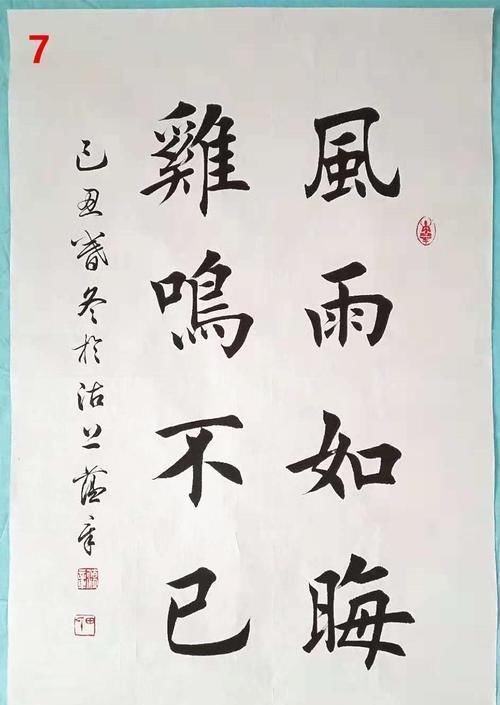 7
風雨如晦
雞鳴不已
己丑暮冬於沽上